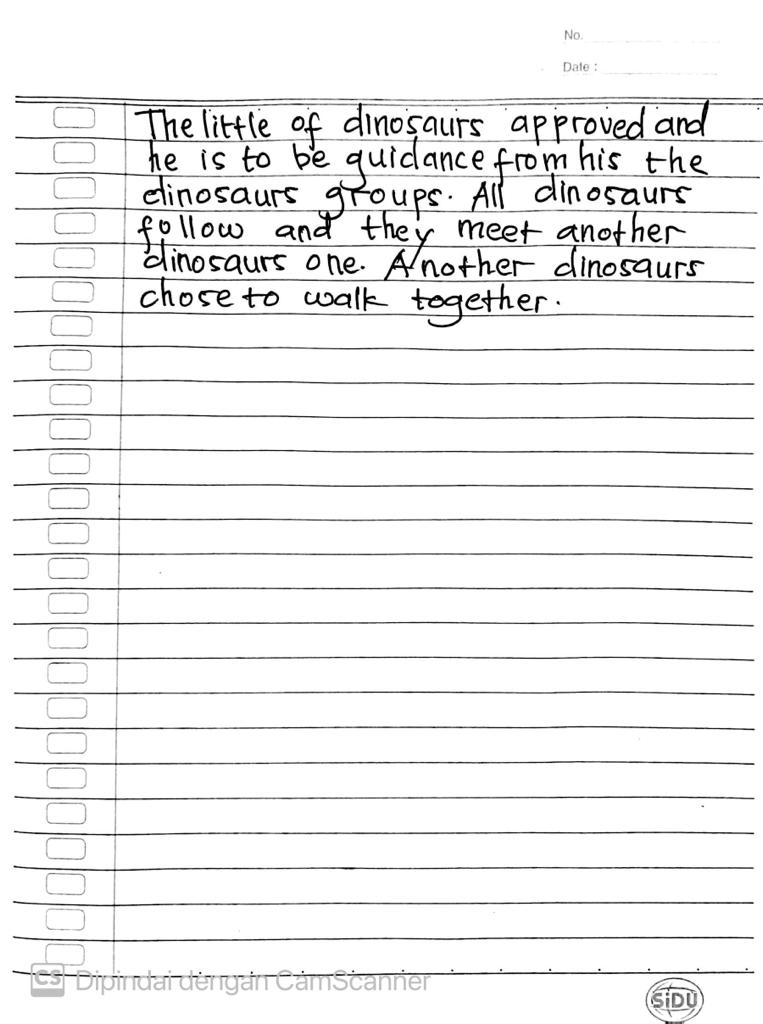 No.
Date :
The little of dinosaurs approved and
he is to be guidance from his the
dinosaurs groups. All dinosaurs
follow and they meet another
dinosaurs one. Another dinosaurs
chose to walk together.
CS Dipindai dengan CamScanner
SiDU